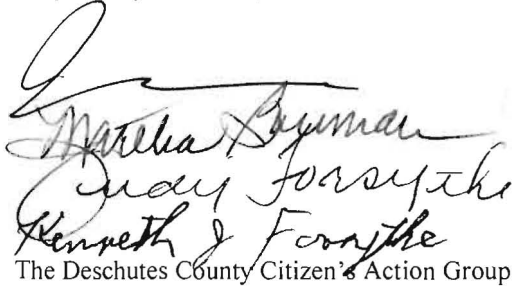 Martha Bauman
Judy Forsythe
Kenneth J Forsythe
The Deschutes County Citizen's Action Group